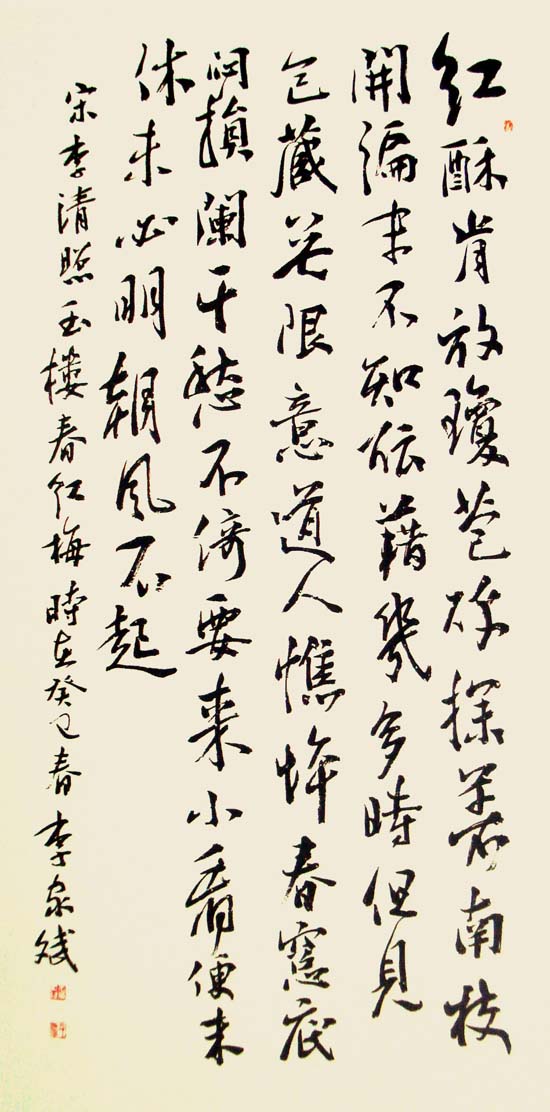 紅酥肯放瓊苞碎探著南枝
開遍未不知藉幾多時但見
包藏無限意道人憔悴春窓底
悶損闌干愁不倚要來小看便來
休未必明朝風不起
宋李清照玉樓春紅梅時在癸巳春李家斌